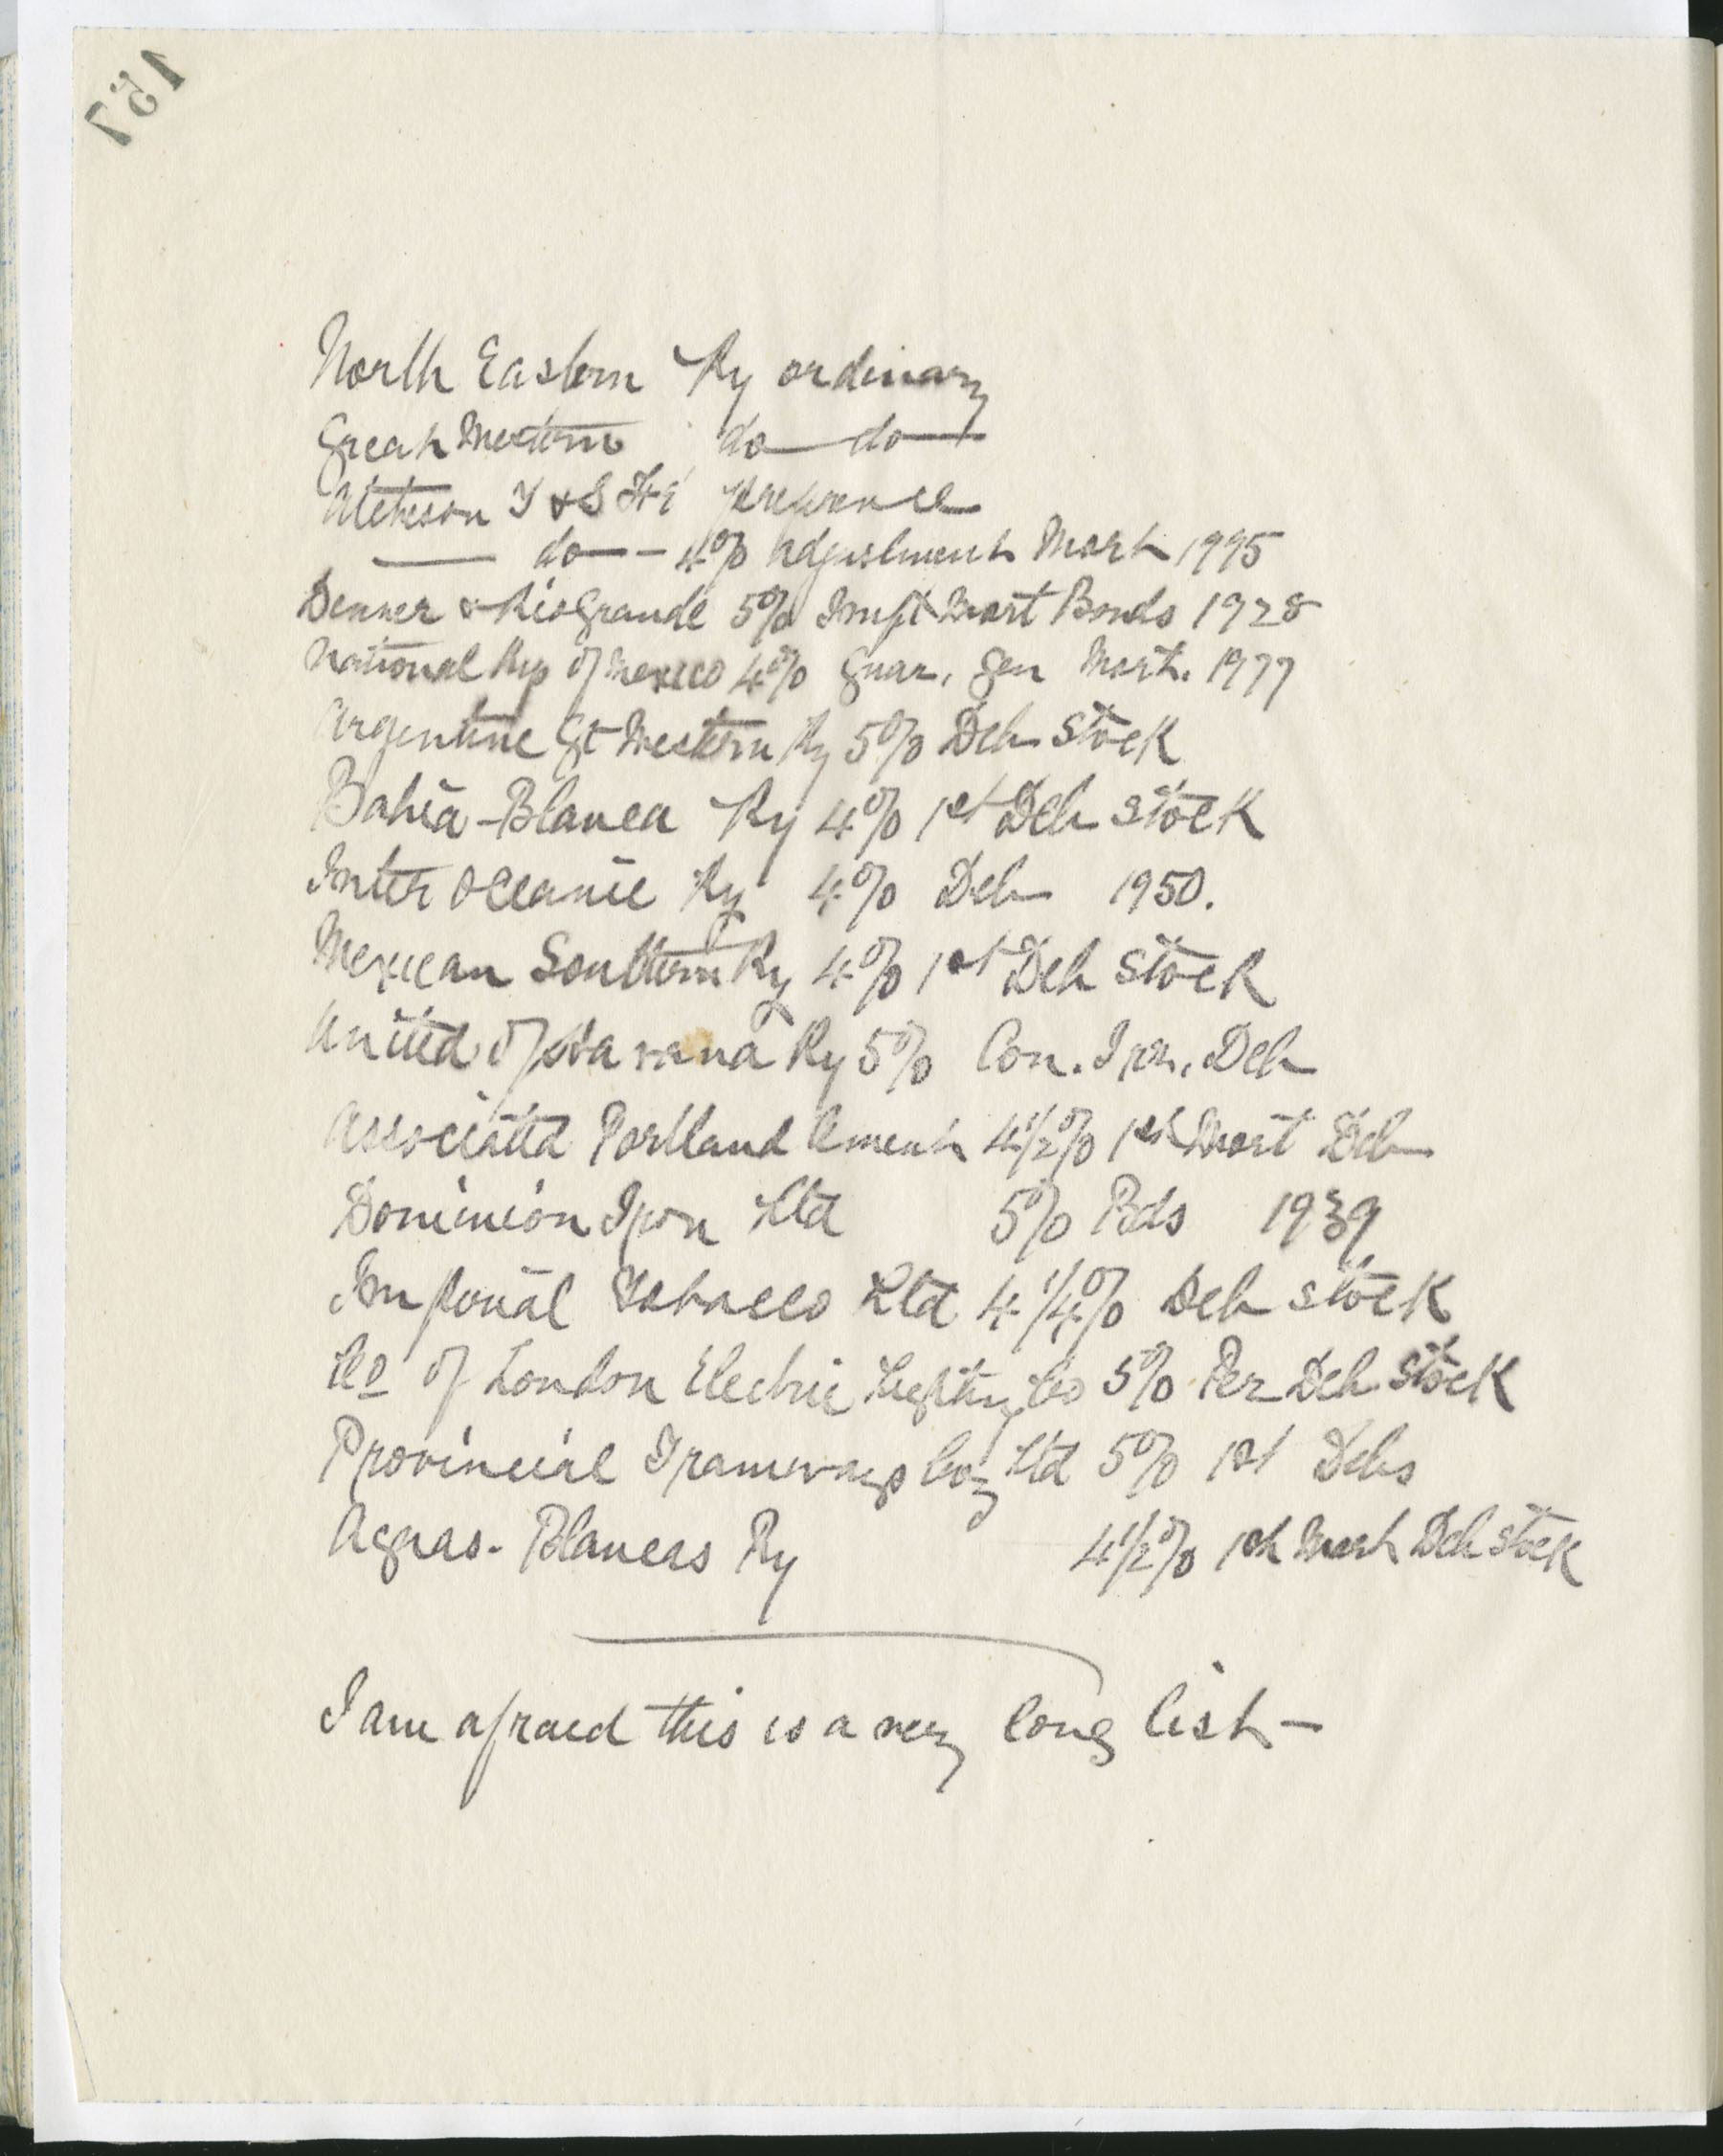 157
North Eastern Ry ordinary
Great Western do do
Atcheson T & S Fé preference
do 4% Adjustment Mort 1995
Denver & Rio Grande 5% Impt Mort Bonds 1928
National Rys of Mexico 4% Guar. Gen Mort. 1977
Argentine Gt Western Ry 5% Deb Stock
Bahia-Blanca Ry 4% 1st Deb Stock
Inter Oceanic Ry 4% Deb 1950.
Mexican Southern Ry 4% 1st Deb Stock
United of Havana Ry 5% Con. Irr. Deb
Associated Portland Cement 4½% 1st Mort Deb
Dominion Iron Ltd 5% Bds 1939
Imperial Tobacco Ltd 4¼% Deb Stock
Co of London Electric Lighting Co 5% Per Deb Stock
Provincial Tramways Coy Ltd 5% 1st Debs
Aguas-Blancas Ry 4½% 1st Mort Deb Stock
I am afraid this is a very long list—